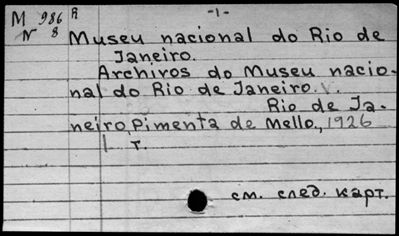 М 986 R -1-
N 8 Museu nacional do Rio de
Janeiro.
Archivos do Museu nacio-
nal do Rio de Janeiro. V.
Rio de Ja-
neiro, Pimenta de Mello, 1926
т.
см. след. карт.